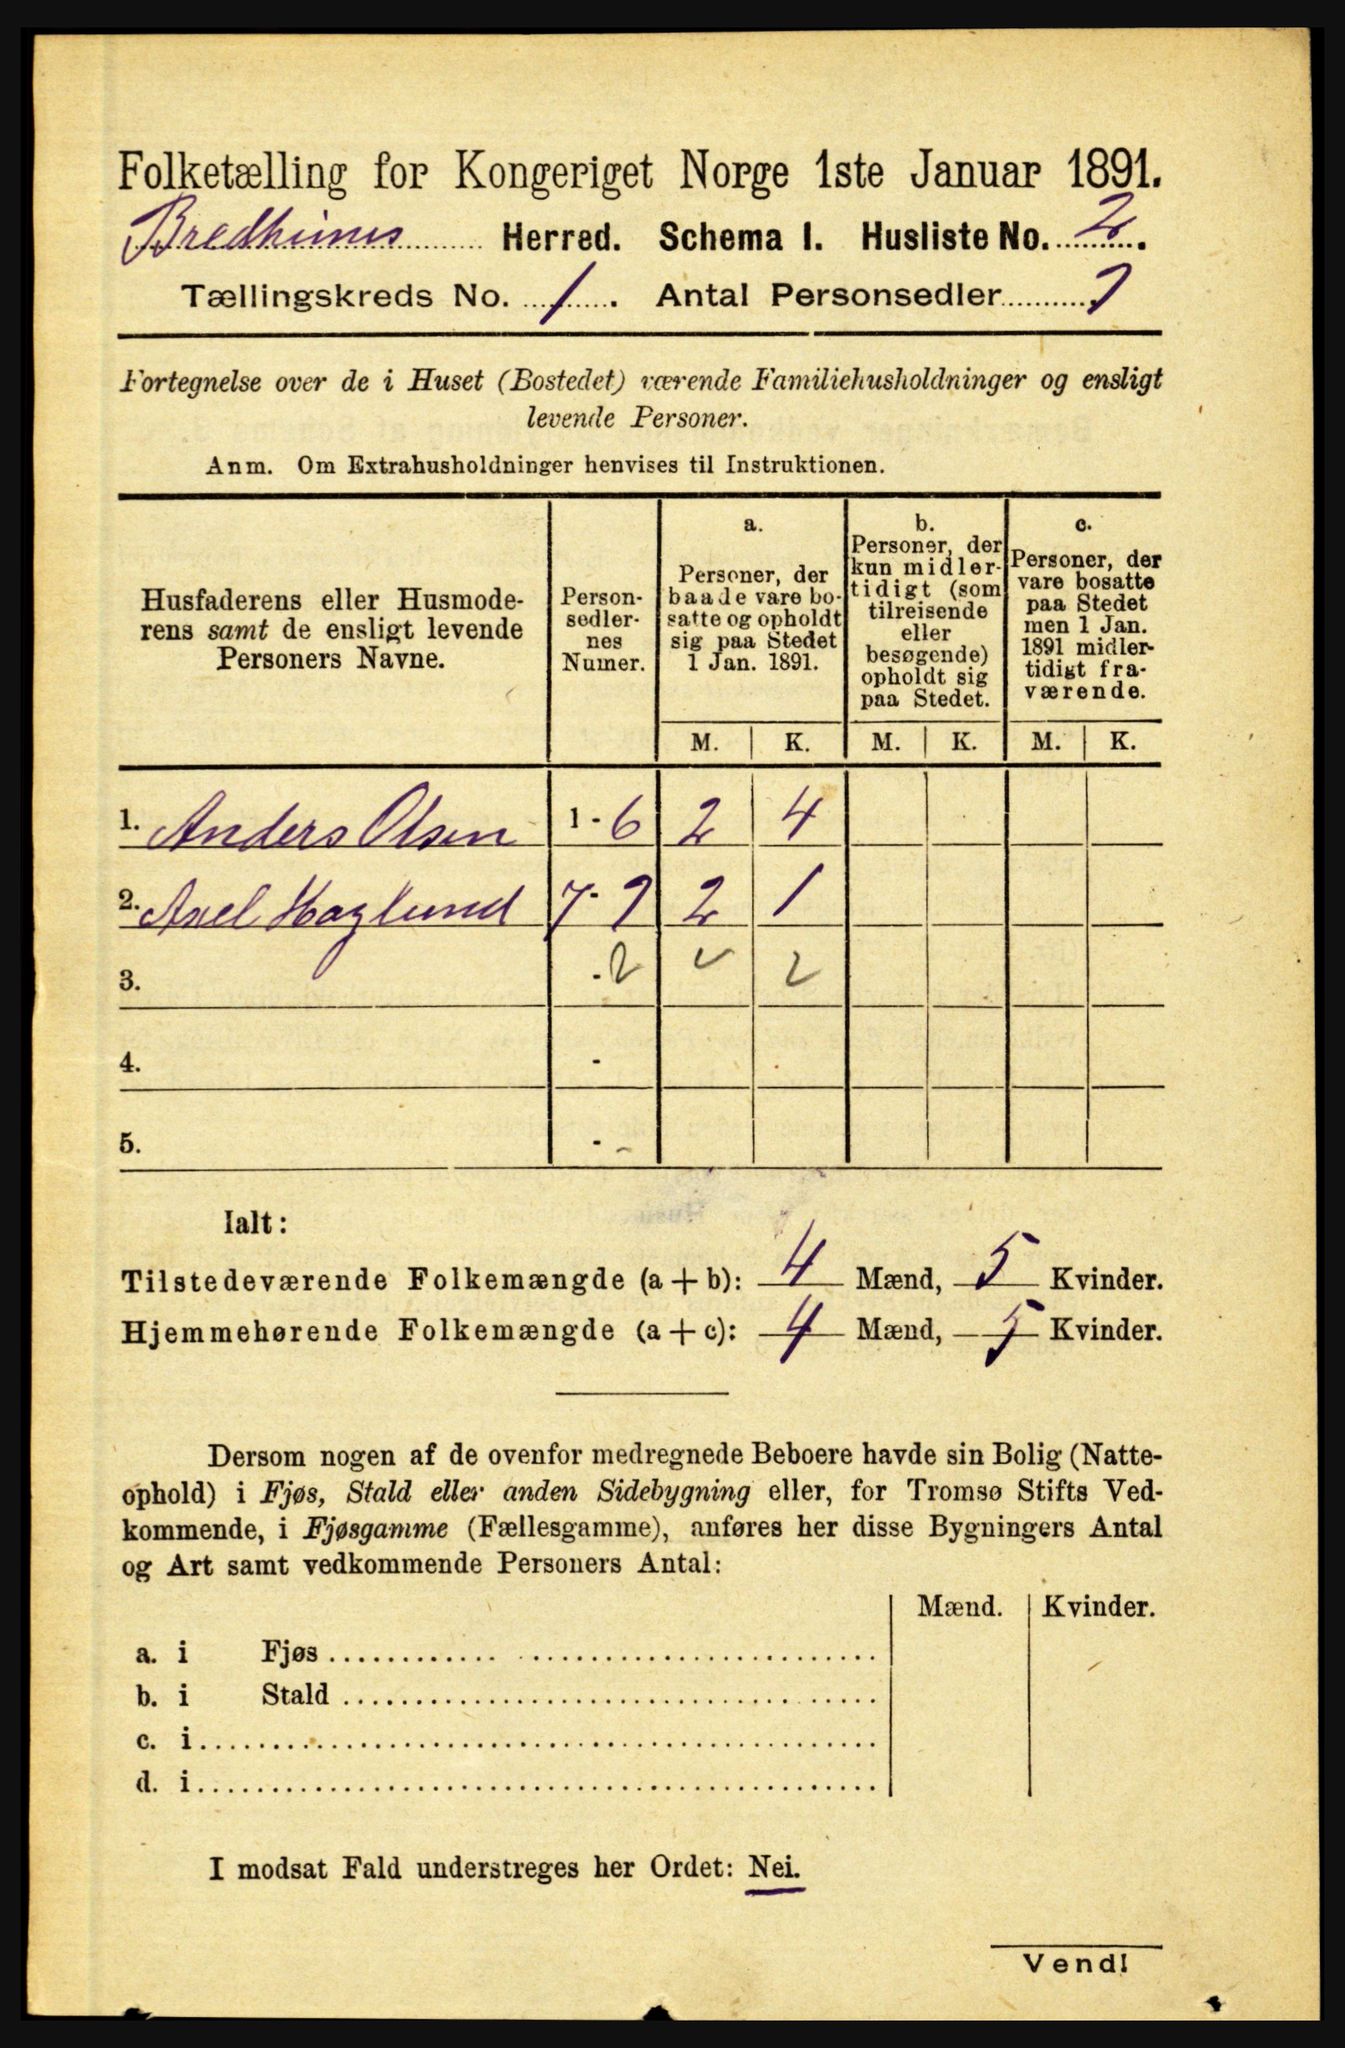 Folketælling for Kongeriget Norge 1ste Januar 1891.
Bredheims Herred. Schema I. Husliste No. 2.
Tællingskreds No. 1. Antal Personsedler 9
Fortegnelse over de i Huset (Bostedet) værende Familiehusholdninger og ensligt
levende Personer.
Anm. Om Extrahusholdninger henvises til Instruktionen.
Husfaderens eller Husmode-
rens samt de ensligt levende
Personers Navne.
Person-
sedler-
nes
Numer.
a.
Personer, der
baade vare bo-
satte og opholdt
sig paa Stedet
1 Jan. 1891.
b.
Personer, der
kun midler-
tidigt (som
tilreisende
eller
besøgende)
opholdt sig
paa Stedet.
c.
Personer, der
vare bosatte
paa Stedet
men 1 Jan.
1891 midler-
tidigt fra-
værende.
M. K. M. K. M. K.
1. Anders Olsen 1 - 6 2 4
2. Axel Haglund 7 - 9 2 1
3. - 2 2
4. -
5. -
Ialt:
Tilstedeværende Folkemængde (a + b): 4 Mænd, 5 Kvinder.
Hjemmehørende Folkemængde (a + c): 4 Mænd, 5 Kvinder.
Dersom nogen af de ovenfor medregnede Beboere havde sin Bolig (Natte-
ophold) i Fjøs, Stald eller anden Sidebygning eller, for Tromsø Stifts Ved-
kommende, i Fjøsgamme (Fællesgamme), anføres her disse Bygningers Antal
og Art samt vedkommende Personers Antal:
Mænd. Kvinder.
a. i Fjøs
b. i Stald
c. i
d. i
I modsat Fald understreges her Ordet: Nei.
Vend!